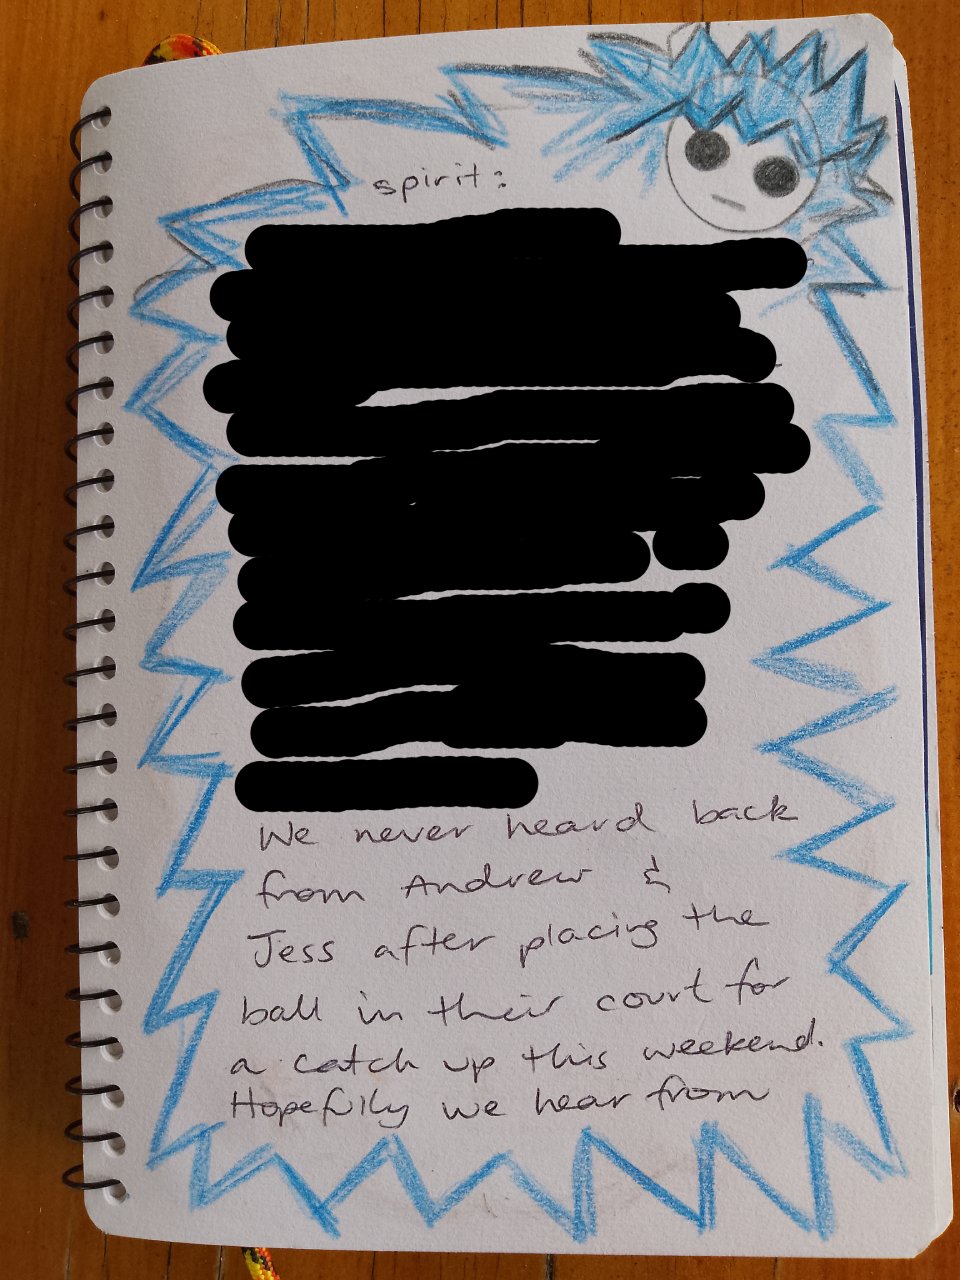 spirit:
We never heard back
from Andrew &
Jess after placing the
ball in their court for
a catch up this weekend.
Hopefully we hear from